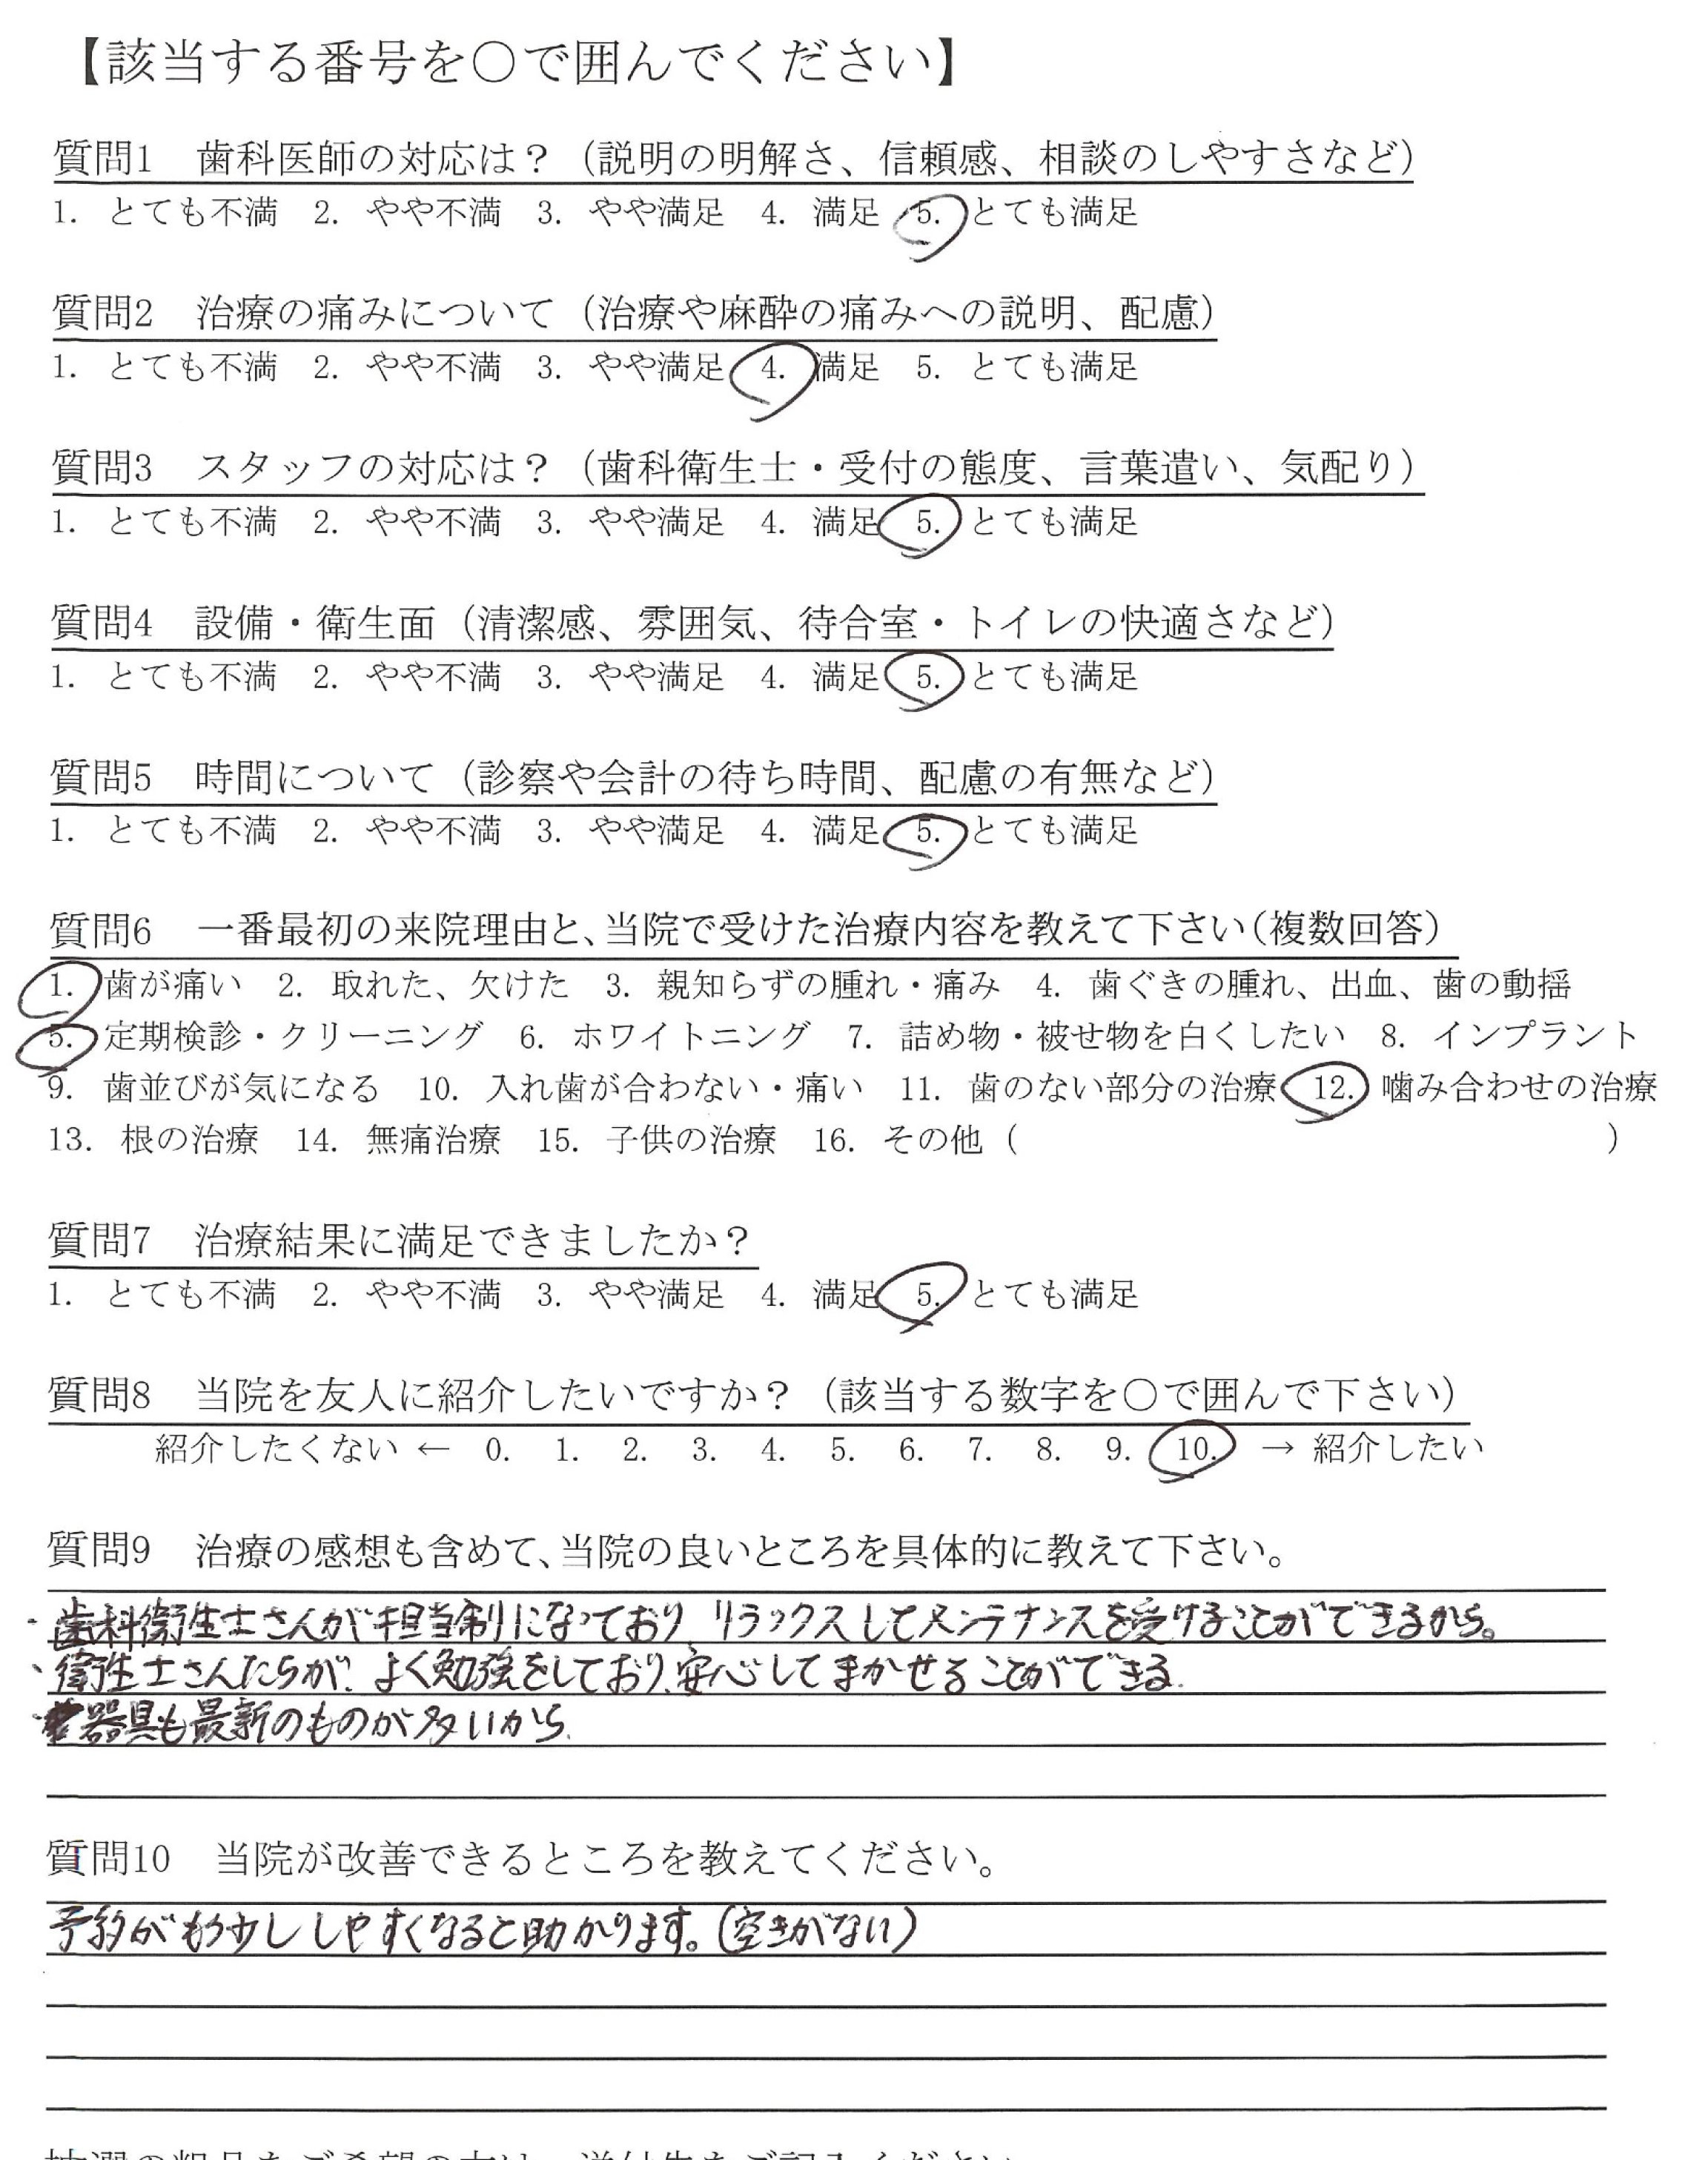 【該当する番号を○で囲んでください】
質問1　歯科医師の対応は？（説明の明解さ、信頼感、相談のしやすさなど）
1. とても不満　2. やや不満　3. やや満足　4. 満足　5. とても満足
質問2　治療の痛みについて（治療や麻酔の痛みへの説明、配慮）
1. とても不満　2. やや不満　3. やや満足　4. 満足　5. とても満足
質問3　スタッフの対応は？（歯科衛生士・受付の態度、言葉遣い、気配り）
1. とても不満　2. やや不満　3. やや満足　4. 満足　5. とても満足
質問4　設備・衛生面（清潔感、雰囲気、待合室・トイレの快適さなど）
1. とても不満　2. やや不満　3. やや満足　4. 満足　5. とても満足
質問5　時間について（診察や会計の待ち時間、配慮の有無など）
1. とても不満　2. やや不満　3. やや満足　4. 満足　5. とても満足
質問6　一番最初の来院理由と、当院で受けた治療内容を教えて下さい（複数回答）
1. 歯が痛い　2. 取れた、欠けた　3. 親知らずの腫れ・痛み　4. 歯ぐきの腫れ、出血、歯の動揺
5. 定期検診・クリーニング　6. ホワイトニング　7. 詰め物・被せ物を白くしたい　8. インプラント
9. 歯並びが気になる　10. 入れ歯が合わない・痛い　11. 歯のない部分の治療　12. 噛み合わせの治療
13. 根の治療　14. 無痛治療　15. 子供の治療　16. その他（　　　　　　　）
質問7　治療結果に満足できましたか？
1. とても不満　2. やや不満　3. やや満足　4. 満足　5. とても満足
質問8　当院を友人に紹介したいですか？（該当する数字を○で囲んで下さい）
紹介したくない ←　0.　1.　2.　3.　4.　5.　6.　7.　8.　9.　10.　→ 紹介したい
質問9　治療の感想も含めて、当院の良いところを具体的に教えて下さい。
・歯科衛生士さんが担当制になっており、リラックスしてメンテナンスを受けることができるから。
・衛生士さんたちが、よく勉強をしており、安心してまかせることができる.
器具も最新のものが多いから.
質問10　当院が改善できるところを教えてください。
予約がもう少ししやすくなると助かります。（空きがない）